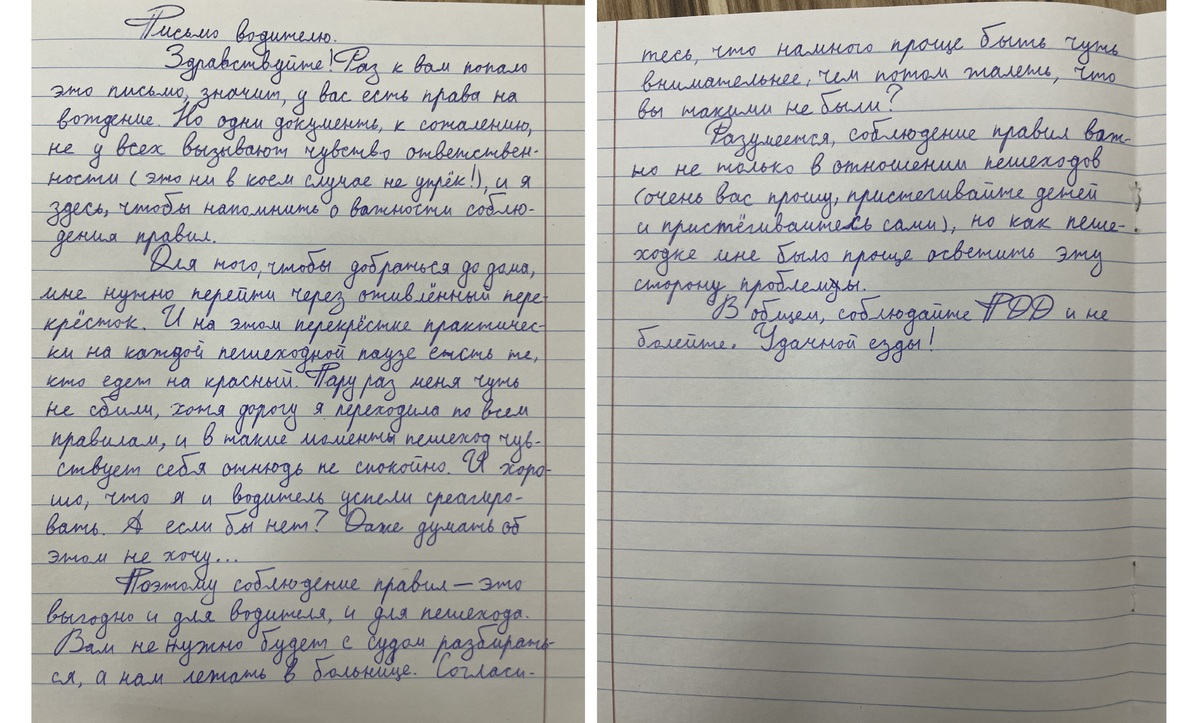 Письмо водителю.
Здравствуйте! Раз к вам попало
это письмо, значит, у вас есть права на
вождение. Но одни документы, к сожалению,
не у всех вызывают чувство ответствен-
ности (это ни в коем случае не упрёк!), и я
здесь, чтобы напомнить о важности соблю-
дения правил.
Для того, чтобы добраться до дома,
мне нужно перейти через оживлённый пере-
крёсток. И на этом перекрёстке практичес-
ки на каждой пешеходной паузе есть те,
кто едет на красный. Пару раз меня чуть
не сбили, хотя дорогу я переходила по всем
правилам, и в такие моменты пешеход чув-
ствует себя отнюдь не спокойно. И хоро-
шо, что я и водитель успели среагиро-
вать. А если бы нет? Даже думать об
этом не хочу...
Поэтому соблюдение правил — это
выгодно и для водителя, и для пешехода.
Вам не нужно будет с судом разбирать-
ся, а нам лежать в больнице. Согласи-
тесь, что намного проще быть чуть
внимательнее, чем потом жалеть, что
вы такими не были?
Разумеется, соблюдение правил важ-
но не только в отношении пешеходов
(очень вас прошу, пристегивайте детей
и пристёгивайтесь сами), но как пеше-
ходке мне было проще осветить эту
сторону проблемы.
В общем, соблюдайте ПДД и не
болейте. Удачной езды!